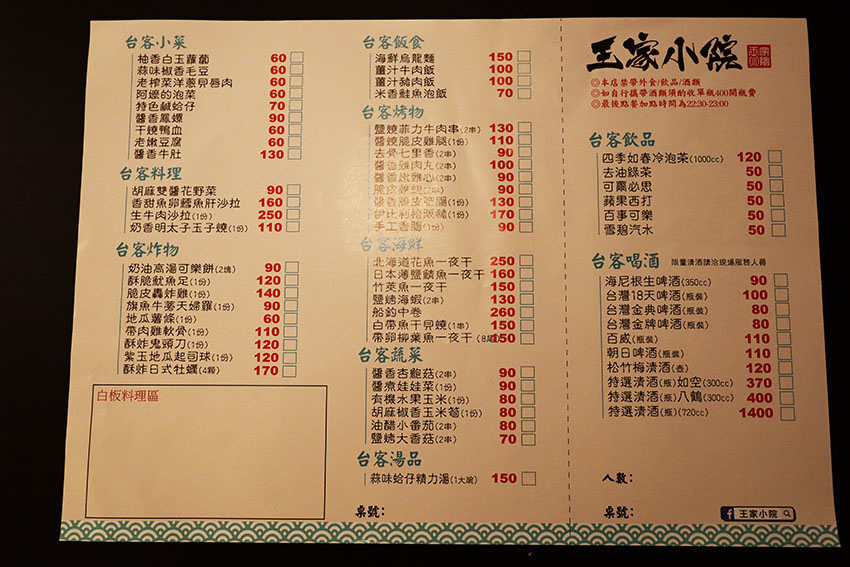 台客小菜
柚香白玉蘿蔔 60
蒜味椒香毛豆 60
老榨菜洋蔥貝唇肉 60
阿嬤的泡菜 60
特色鹹蛤仔 70
醬香鳳螺 90
干燒鴨血 60
老嫩豆腐 60
醬香牛肚 130
台客料理
胡麻雙醬花野菜 90
香甜魚卵鱈魚肝沙拉 160
生牛肉沙拉(1份) 250
奶香明太子玉子燒(1份) 110
台客炸物
奶油高湯可樂餅(2塊) 90
酥脆魷魚足(1份) 120
脆皮轟炸雞(1份) 140
旗魚牛蒡天婦羅(1份) 90
地瓜薯條(1份) 60
帶肉雞軟骨(1份) 110
酥炸鬼頭刀(1份) 120
紫玉地瓜起司球(1份) 120
酥炸日式牡蠣(4顆) 170
白板料理區
台客飯食
海鮮烏龍麵 150
薑汁牛肉飯 100
薑汁豬肉飯 100
米香鮭魚泡飯 70
台客烤物
鹽燒菲力牛肉串(2串) 130
醬燒脆皮雞腿(1份) 110
去骨七里香(2串) 90
醬香雞肉丸(2串) 100
醬香嫩雞心(2串) 90
90
130
伊比利松阪豬(1份) 170
手工香腸(1份) 90
台客海鮮
北海道花魚一夜干 250
日本薄鹽鯖魚一夜干 160
竹莢魚一夜干 150
鹽烤海蝦(2串) 130
船釣中卷 260
白帶魚干貝燒(1串) 150
帶卵柳葉魚一夜干(8尾) 150
台客蔬菜
醬香杏鮑菇(2串) 90
醬煮娃娃菜(1份) 90
有機水果玉米(1份) 80
胡麻椒香玉米筍(1份) 80
油醋小番茄(2串) 80
鹽烤大香菇(2串) 70
台客湯品
蒜味蛤仔精力湯(1大碗) 150
桌號：
王家小院
◎本店禁帶外食/飲品/酒類
◎如自行攜帶酒類須酌收單瓶400開瓶費
◎最後點餐加點時間為22:30-23:00
台客飲品
四季如春冷泡茶(1000cc) 120
去油綠茶 50
可爾必思 50
蘋果西打 50
百事可樂 50
雪碧汽水 50
台客喝酒 限量清酒請洽現場服務人員
海尼根生啤酒(350cc) 90
台灣18天啤酒(瓶裝) 100
台灣金典啤酒(瓶裝) 80
台灣金牌啤酒(瓶裝) 80
百威(瓶裝) 110
朝日啤酒(瓶裝) 110
松竹梅清酒(壺) 120
特選清酒(瓶)如空(300cc) 370
特選清酒(瓶)八鶴(300cc) 400
特選清酒(瓶)(720cc) 1400
人數：
桌號：
f 王家小院